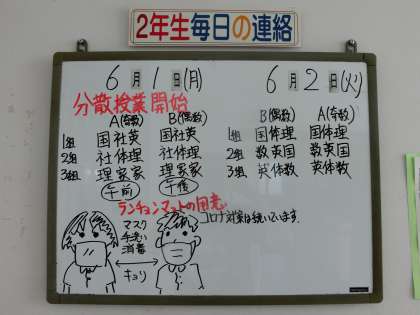 2年生毎日の連絡
6月1日(月) 6月2日(火)
分散授業開始
A(奇数) B(偶数) B(偶数) A(奇数)
1組 国社英 国社英 1組 国体理 国体理
2組 社体理 社体理 2組 数英国 数英国
3組 理家家 理家家 3組 英体数 英体数
午前 午後
ランチョンマットの用意
コロナ対策は続いています
マスク
手洗い
消毒
キョリ